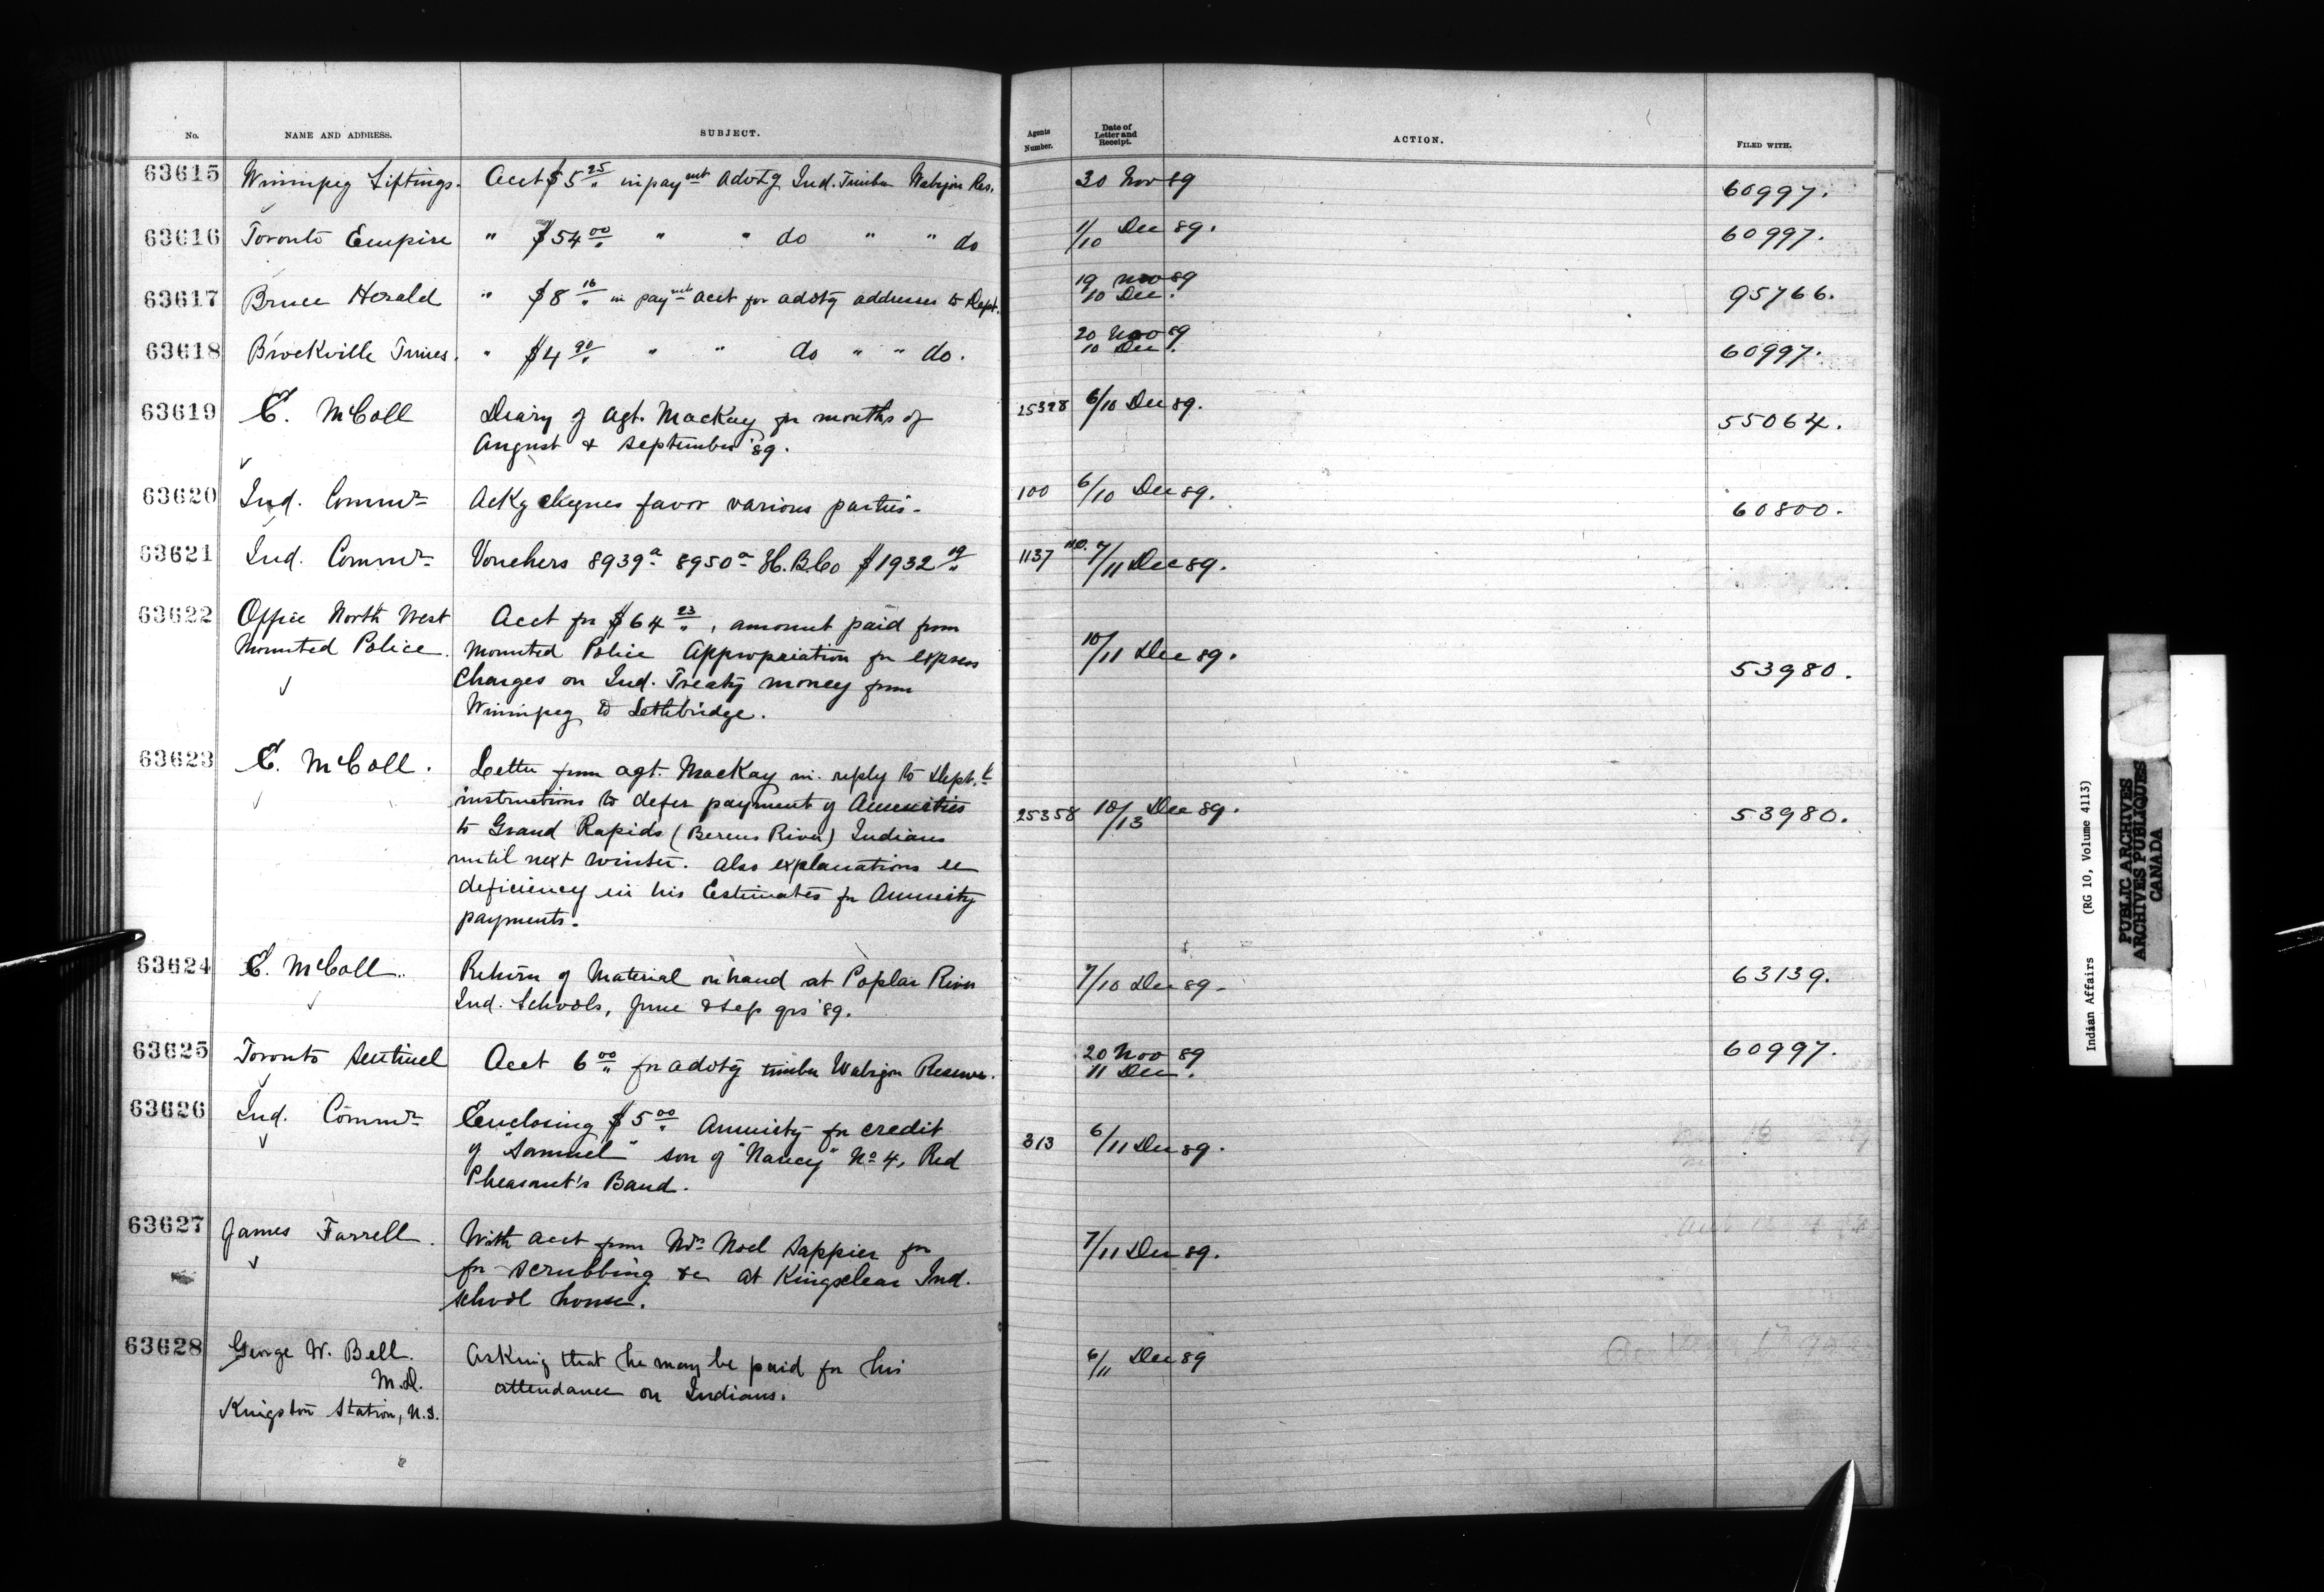 No. NAME AND ADDRESS. SUBJECT. Agents Number. Date of Letter and Receipt. ACTION. FILED WITH.
63615 Winnipeg Siftings. Acct $5 25 in paymt advtg Ind. Timber Wabigon Res. 30 Nov 89 60997.
63616 Toronto Empire " $54 00 " " do " " do 1/10 Dec 89. 60997.
63617 Bruce Herald " $8 16 in paymt acct for advtg addresses to Dept. 19 Nov 89 10 Dec. 95766.
63618 Brockville Times. " $4 90 " " do " " do. 20 Nov 89 10 Dec. 60997.
63619 E. McColl Diary of Agt. MacKay for months of 25328 6/10 Dec 89. 55064.
August & September '89.
63620 Ind. Commr Ackg cheques favor various parties. 100 6/10 Dec 89. 60800.
63621 Ind. Commr Vouchers 8939a 8950a H.B.Co $1932 19 1137 7/11 Dec 89.
63622 Office North West Acct for $64 23, amount paid from
Mounted Police. Mounted Police Appropriation for express 10/11 Dec 89. 53980.
Charges on Ind. Treaty money from
Winnipeg to Lethbridge.
63623 E. McColl. Letter from Agt. MacKay in reply to Dept.
instructions to defer payment of Annuities
to Grand Rapids (Berens River) Indians 25358 10/13 Dec 89. 53980.
until next winter. Also explanations re
deficiency in his Estimates for Annuity
payments.
63624 E. McColl. Return of Material on hand at Poplar River 7/10 Dec 89. 63139.
Ind. Schools, June & Sep qrs '89.
63625 Toronto Sentinel Acct 6 00 for advtg timber Wabigon Reserve. 20 Nov 89 11 Dec. 60997.
63626 Ind. Commr Enclosing $5 00 Annuity for credit
of "Samuel" son of "Nancy" No 4, Red 313 6/11 Dec 89.
Pheasant's Band.
63627 James Farrell. With acct from Mrs Noel Sappier for 7/11 Dec 89.
for scrubbing &c at Kingsclear Ind.
School house.
63628 George W. Bell. Asking that he may be paid for his 6/11 Dec 89
M.D. attendance on Indians.
Kingston Station, N.S.
Indian Affairs (RG 10, Volume 4113)
PUBLIC ARCHIVES
ARCHIVES PUBLIQUES
CANADA